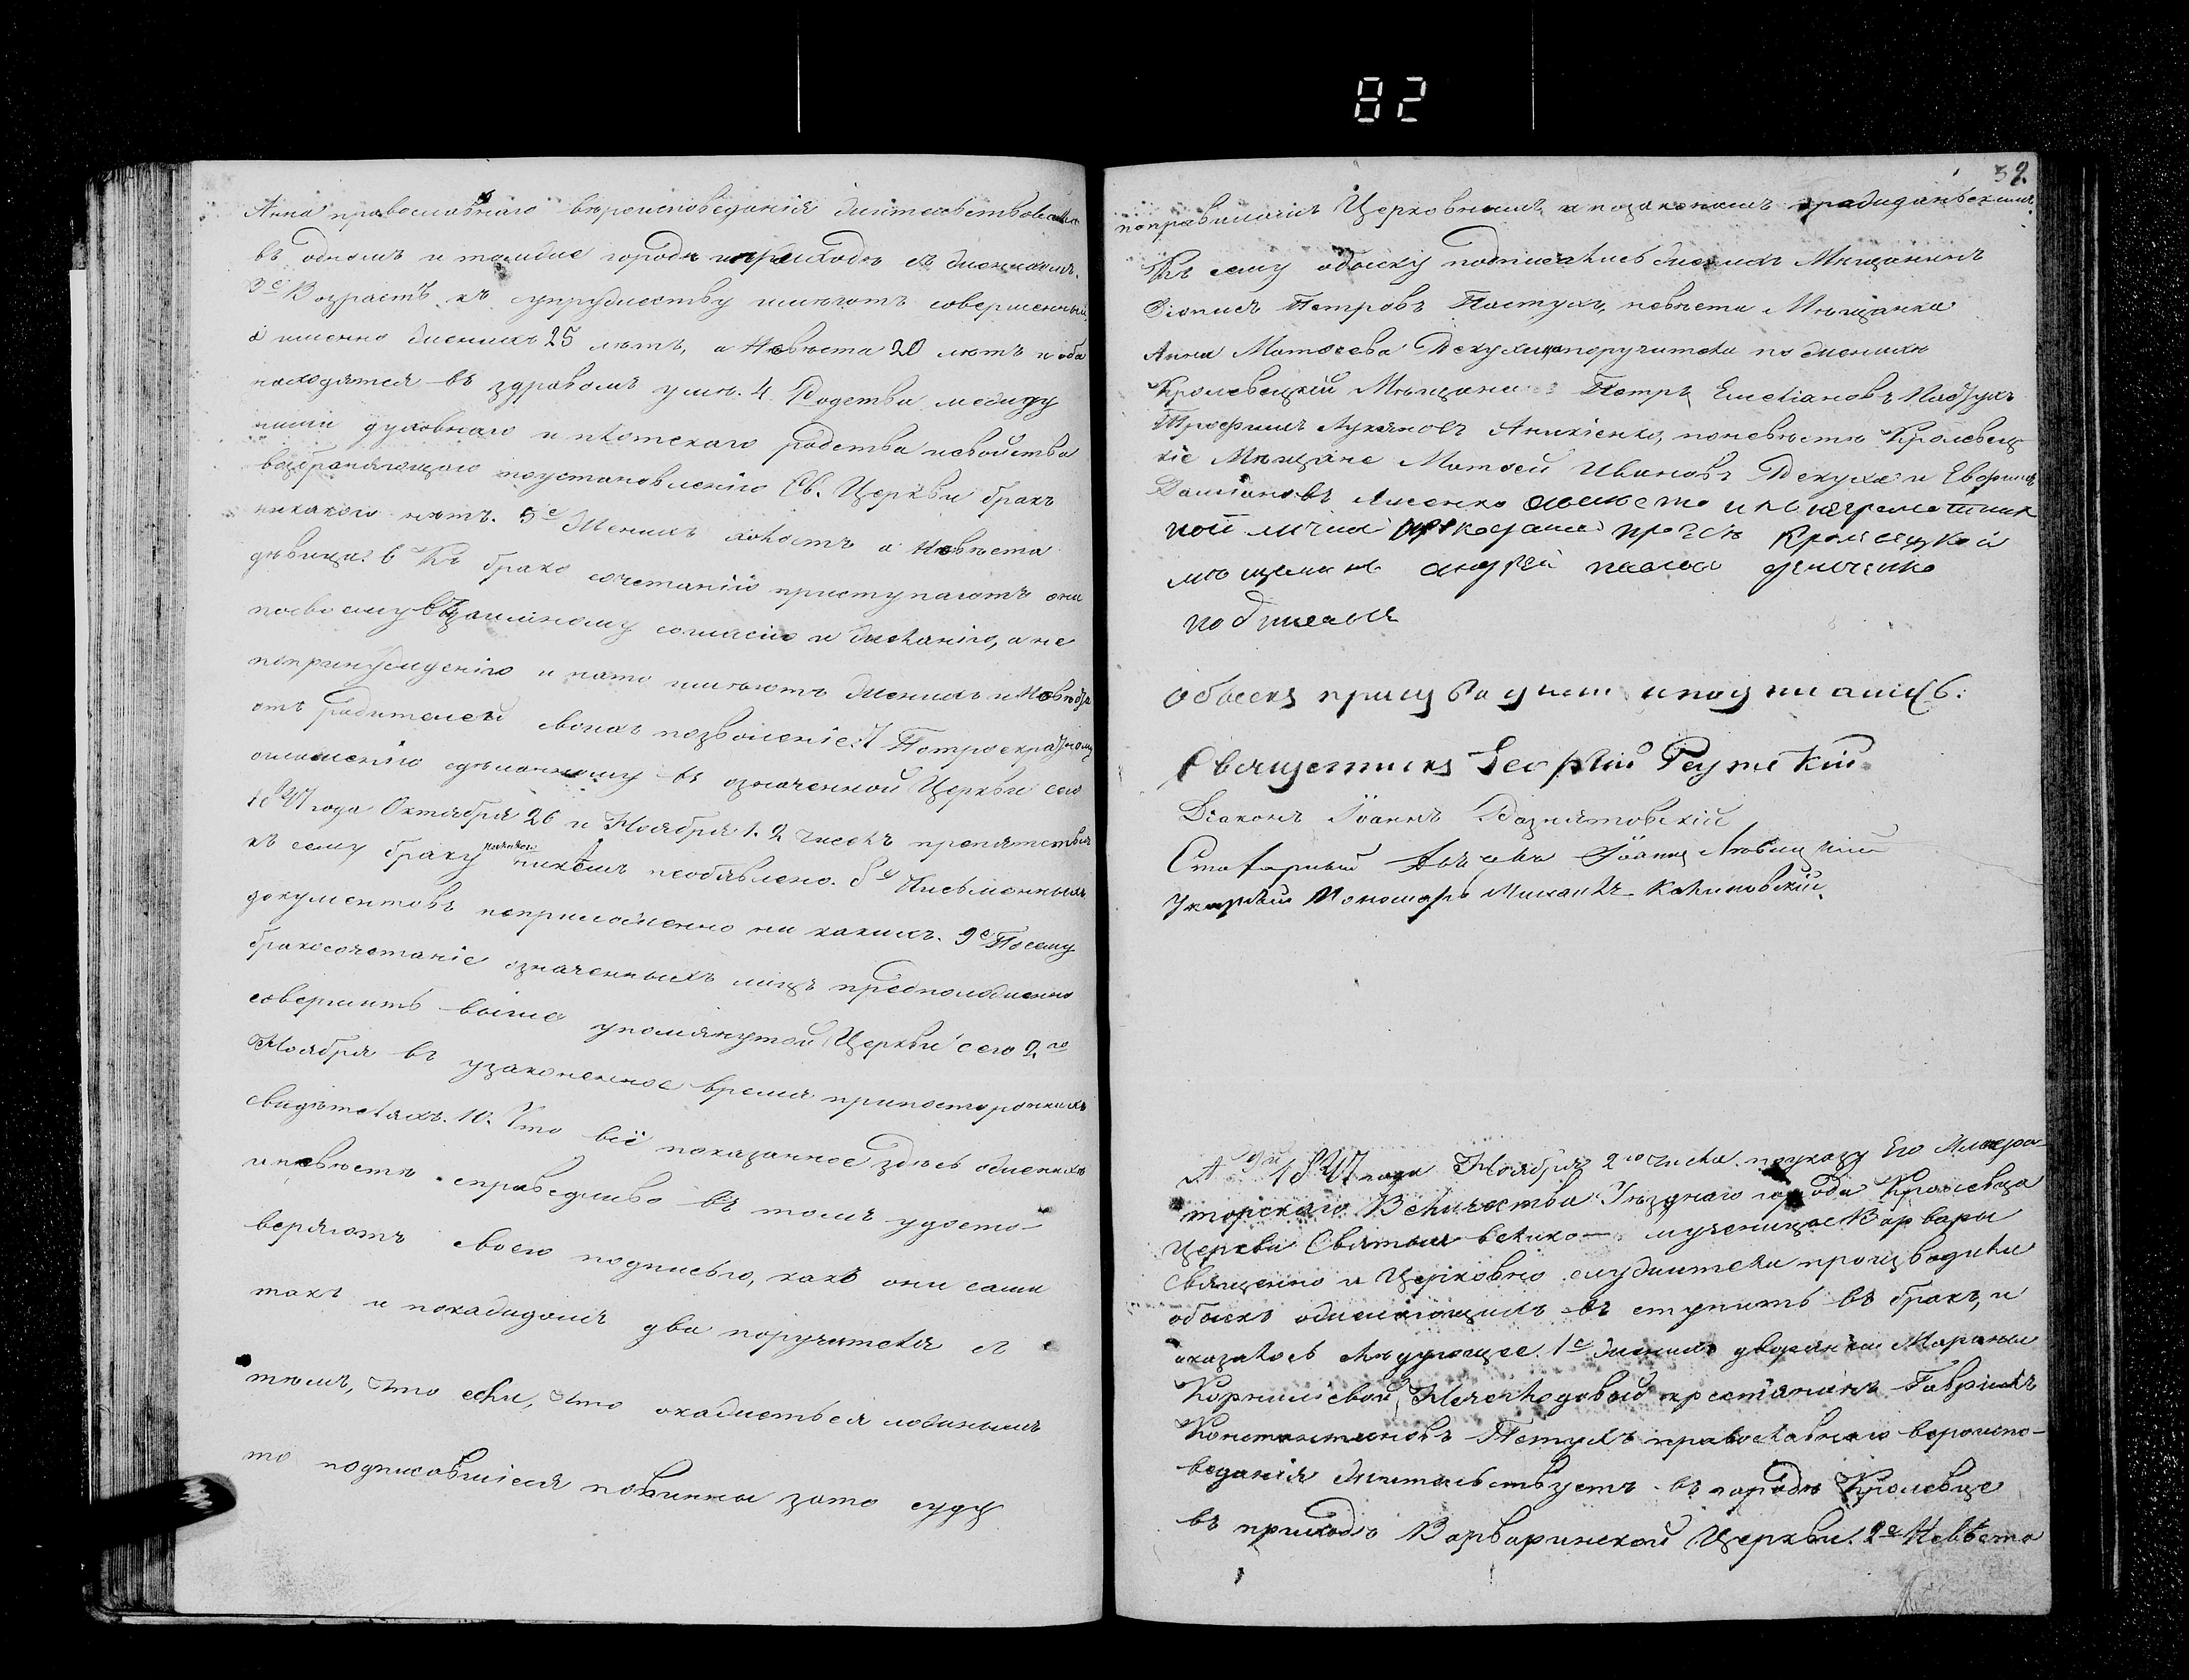 82
Анна православнаго вѣроисповѣданія жительствовала
въ одномъ и томъже городѣ и приходѣ съ женихомъ.
3е Возрастъ къ супружеству имѣютъ совершенный
а именно женихъ 25 лѣтъ, а Невѣста 20 лѣтъ и оба
находятся въ здравомъ умѣ. 4 Родства между
ними духовнаго и плотскаго родства и свойства
возбраняющаго по установленію Св. Церкви бракъ
никакого нѣтъ. 5е Женихъ холостъ а Невѣста
дѣвица. 6 Къ брако сочетанію приступаютъ они
по своему взаимному согласію и желанію, а не
по принужденію и на то имѣютъ женихъ и Невѣста
отъ родителей своихъ позволеніе. 7 По троекратному
оглашенію сдѣланному въ означенной Церкви сего
1847 года Октября 26 и Ноября 1. 2 числъ препятствія
къ сему браку никакого никемъ необъявлено. 8е Письменныхъ
документовъ неприложенно ни какихъ. 9е Посему
бракосочетаніе означенныхъ лицъ предположенно
совершить выше упомянутой Церкви сего 2го
Ноября въ узаконенное время при постороннихъ
свидѣтеляхъ. 10. Что всё показанное здѣсь о женихѣ
и невѣстѣ справедливо въ томъ удосто-
веряютъ своею подписью, какъ они сами
такъ и по каждомъ два поручителя съ
тѣмъ, что если, что окажеться ложнымъ
то подписавшіеся повинны за то суду
32.
по правиламъ Церковнымъ и по законамъ гражданскимъ.
Къ сему обыску подписались женихъ Мѣщанинъ
Діонисъ Петровъ Пастухъ, невѣста Мѣщанка
Анна Матвеева поручители по женихѣ
Кролевецкій Мѣщанинъ Петръ Емельяновъ
Трофимъ Лукьяновъ Аникіенко, по невѣстѣ Кролевец-
кіе Мѣщане Матвей Ивановъ и
Даміановъ Лисенко а вместо ихъ неграмотних
по ихъ личной прозбѣ Кролевецкой
мещанинъ андрей павлов
подписалъ
обыскъ производили и подписались:
Священникъ Георгій
Діаконъ Іоаннъ
Дьячекъ Іоаннъ Любицкій
Пономарь Михаилъ Калиновскій.
1847 года Ноября 2го числа по указу Его Импера-
торскаго Величества Уѣзднаго города Кролевца
Церкви Святыя велико- мученицы Варвары
Священно и Церковно служители производили
обыскъ о желающихъ въ ступить въ бракъ, и
оказалось слѣдующее. 1е Женихъ дворянки Марины
Корниліевой крестьянинъ Гавріилъ
Константиновъ Петухъ православнаго вероиспо-
веданія жительствуетъ въ городѣ Кролевце
въ приходѣ Варваринской Церкви. 2е Невѣста